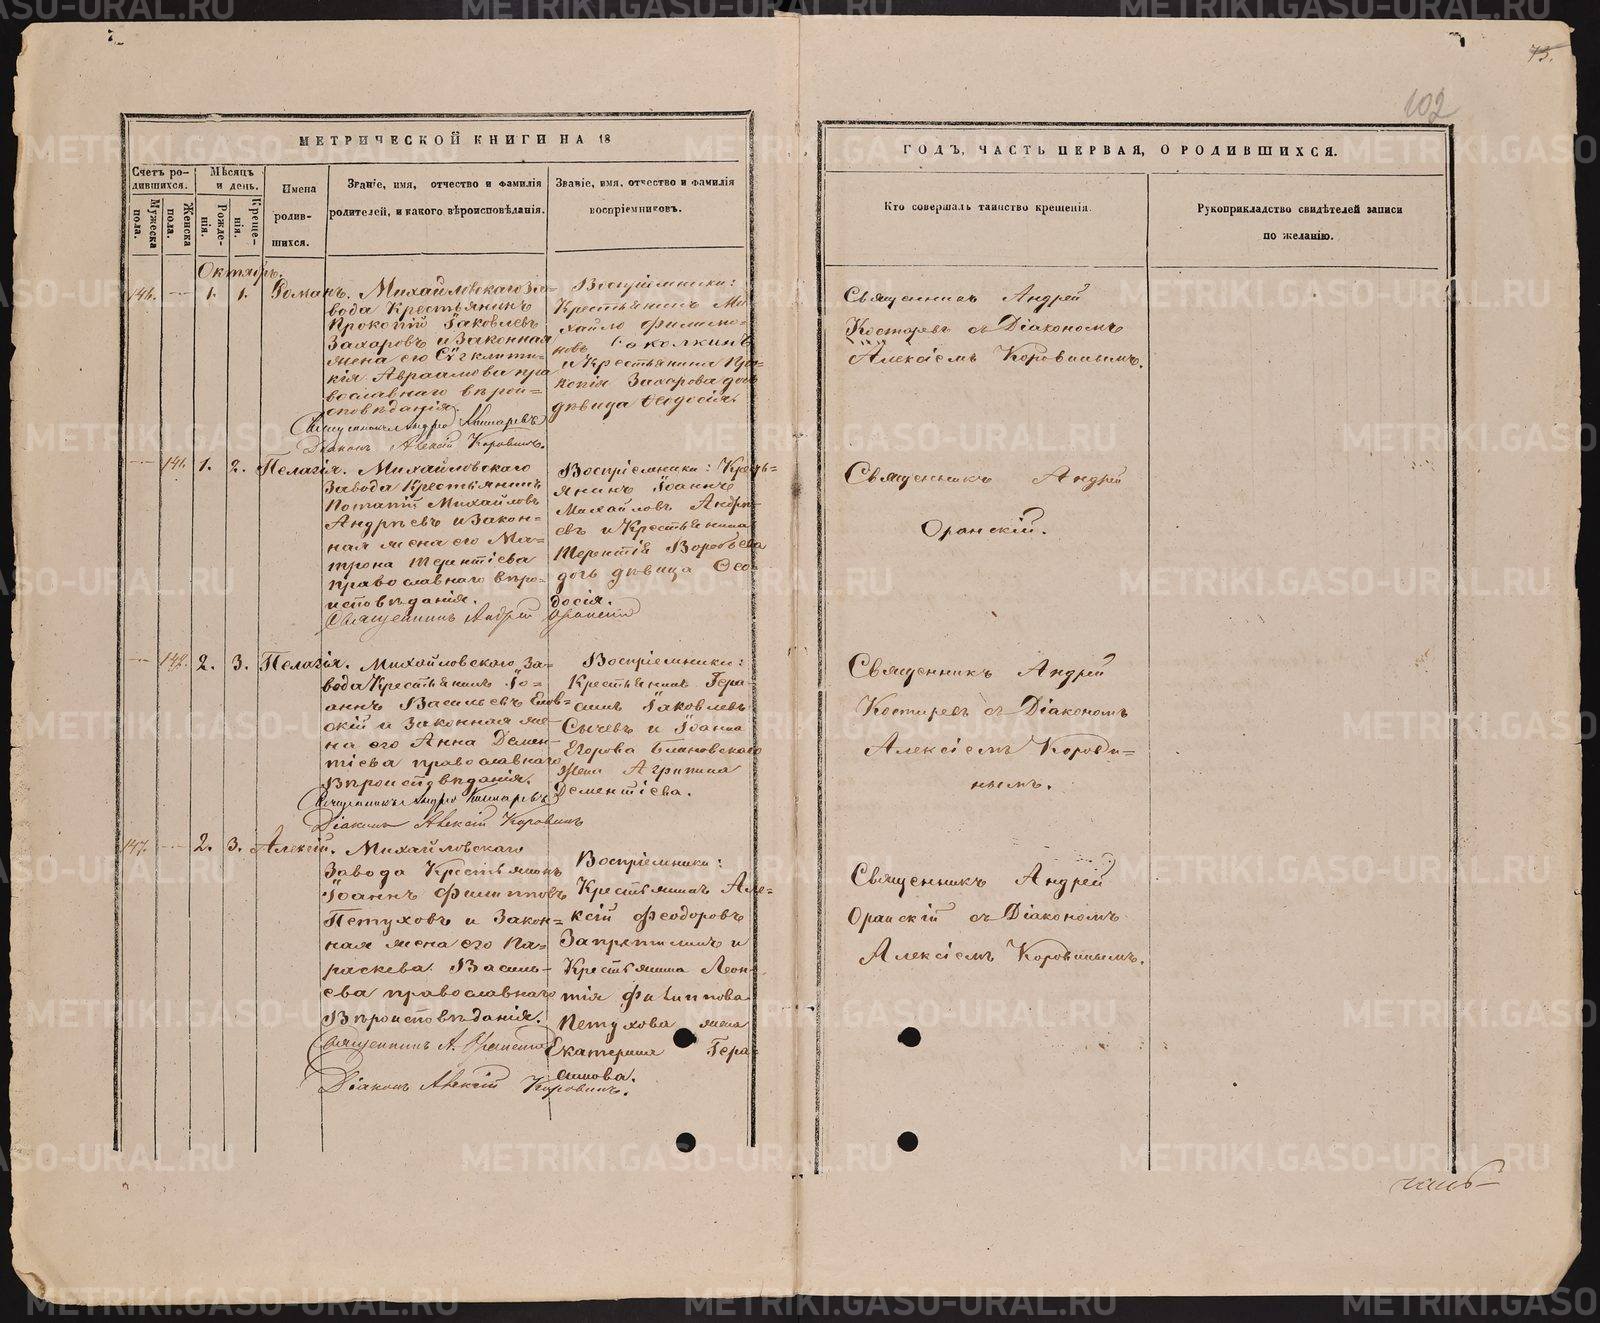 75.
102
МЕТРИЧЕСКОЙ КНИГИ НА 18
ГОДЪ, ЧАСТЬ ПЕРВАЯ, О РОДИВШИХСЯ.
Счетъ ро-
дившихся.
Мужеска
пола.
Женска
пола.
Мѣсяцъ
и день.
Рожде-
нія.
Креще-
нія.
Имена
родив-
шихся.
Званіе, имя, отчество и фамилія
родителей, и какого вѣроисповѣданія.
Званіе, имя, отчество и фамилія
воспріемниковъ.
Кто совершалъ таинство крещенія.
Рукоприкладство свидѣтелей записи
по желанію.
Октябрь.
146. 1. 1. Романъ.
Михайловскаго За-
вода Крестьянинъ
Прокопій Іаковлевъ
Захаровъ и Законная
жена его
Авраамова пра
вославнаго вѣрои-
сповѣданія.
Священникъ Андрей Костаревъ
Діаконъ Алексій Коровинъ.
Воспріемники:
Крестьянинъ Ми
хайло Филимо-
новъ Соколкинъ
и Крестьянина Про-
копія Захарова дочь
дѣвица Ѳеодосія.
Священникъ Андрей
Костаревъ съ Діакономъ
Алексіемъ Коровинымъ.
141. 1. 2. Пелагія.
Михайловскаго
Завода Крестьянинъ
Потапій Михайловъ
Андрѣевъ и Закон-
ная жена его Ма-
трона Терентіева
православнаго вѣро-
исповѣданія.
Священникъ Андрей Оранскій
Воспріемники: Кресть-
янинъ Іоаннъ
Михайловъ Андрѣ-
евъ и Крестьянина
Терентія Воробьева
дочь дѣвица Ѳео-
досія.
Священникъ Андрей
Оранскій.
142. 2. 3. Пелагія.
Михайловскаго За-
вода Крестьянинъ Іо-
аннъ Васильевъ
скій и Законная же-
на его Анна Демен-
тіева православнаго
Вѣроисповѣданія.
Священникъ Андрей Костаревъ
Діаконъ Алексій Коровинъ
Воспріемники:
Крестьянинъ Гера-
симъ Іаковлевъ
Сычевъ и Іоанна
Егорова
жена Агрипина
Дементіева.
Священникъ Андрей
Костаревъ съ Діакономъ
Алексіемъ Корови-
нымъ.
147. 2. 3. Алексій.
Михайловскаго
Завода Крестьянинъ
Іоаннъ Филипповъ
Петуховъ и Закон-
ная жена его Па-
раскева Василь-
ева православнаго
Вѣроисповѣданія.
Священникъ А. Оранскій
Діаконъ Алексій Коровинъ.
Воспріемники:
Крестьянинъ Але-
ксій Феодоровъ
Запретилинъ и
Крестьянина Леон-
тія Филиппова
Петухова жена
Екатерина Гера-
симова.
Священникъ Андрей
Оранскій съ Діакономъ
Алексіемъ Коровинымъ.
METRIKI.GASO-URAL.RU